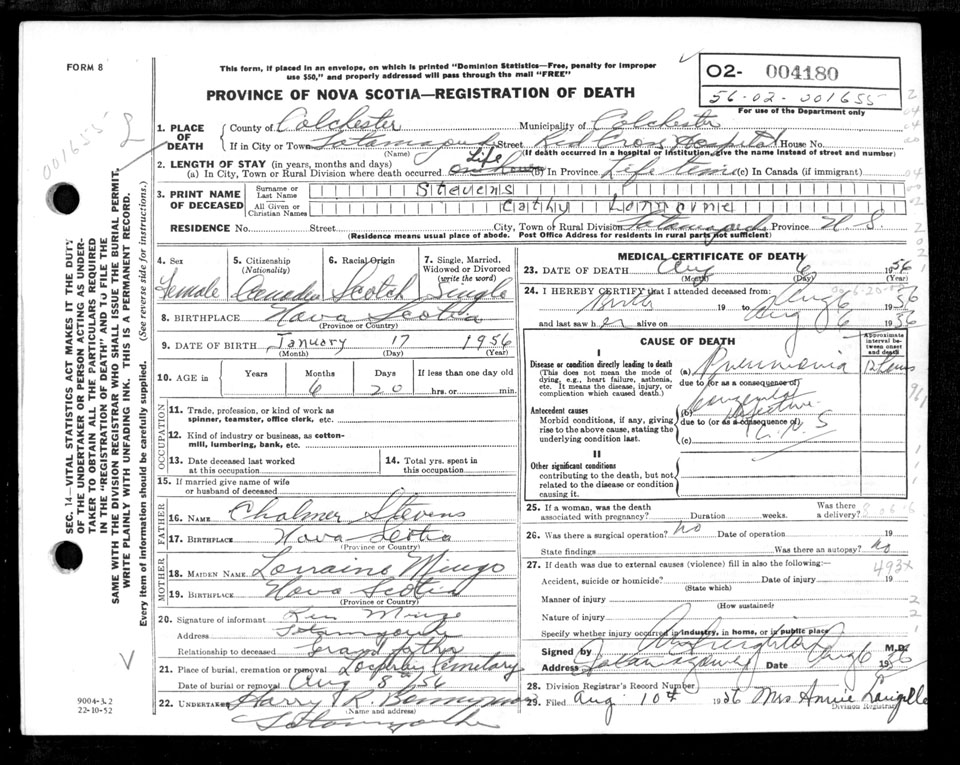 FORM 8
This form, if placed in an envelope, on which is printed "Dominion Statistics—Free, penalty for improper
use $50," and properly addressed will pass through the mail "FREE"
O2- 004180
56-02-001655
For use of the Department only
PROVINCE OF NOVA SCOTIA—REGISTRATION OF DEATH
001655
1. PLACE OF DEATH
County of Colchester Municipality of Colchester
If in City or Town Tatamagouche Street Red Cross Hospital House No.
(Name) (If death occurred in a hospital or institution, give the name instead of street and number)
2. LENGTH OF STAY (in years, months and days)
(a) In City, Town or Rural Division where death occurred Life (b) In Province Life time (c) In Canada (if immigrant)
3. PRINT NAME OF DECEASED
Surname or Last Name Stevens
All Given or Christian Names Cathy Lorraine
RESIDENCE No. Street City, Town or Rural Division Tatamagouche N.S.
(Residence means usual place of abode. Post Office Address for residents in rural parts not sufficient)
4. Sex
Female
5. Citizenship (Nationality)
6. Racial Origin
Scotch
7. Single, Married, Widowed or Divorced (write the word)
Single
8. BIRTHPLACE Nova Scotia
(Province or Country)
9. DATE OF BIRTH January 17 1956
(Month) (Day) (Year)
10. AGE in Years Months Days If less than one day old
6 20 hrs. or min.
OCCUPATION
11. Trade, profession, or kind of work as spinner, teamster, office clerk, etc.
12. Kind of industry or business, as cotton-mill, lumbering, bank, etc.
13. Date deceased last worked at this occupation
14. Total yrs. spent in this occupation
15. If married give name of wife or husband of deceased
FATHER
16. NAME Chalmer Stevens
17. BIRTHPLACE Nova Scotia
(Province or Country)
MOTHER
18. MAIDEN NAME Lorraine Mingo
19. BIRTHPLACE Nova Scotia
(Province or Country)
20. Signature of informant Ken Mingo
Address Tatamagouche
Relationship to deceased Grand father
21. Place of burial, cremation or removal Cemetary
Date of burial or removal Aug 8/56
22. UNDERTAKER Harry R.
(Name and address)
Tatamagouche
MEDICAL CERTIFICATE OF DEATH
23. DATE OF DEATH Aug 6 1956
(Month) (Day) (Year)
24. I HEREBY CERTIFY that I attended deceased from:
Birth 19 to Aug 6 1956
and last saw her alive on Aug 6 1956
CAUSE OF DEATH
Approximate interval between onset and death
I
Disease or condition directly leading to death
(This does not mean the mode of dying, e.g., heart failure, asthenia, etc. It means the disease, injury, or complication which caused death.)
(a) Pneumonia
due to (or as a consequence of)
Antecedent causes
Morbid conditions, if any, giving rise to the above cause, stating the underlying condition last.
(b) Congenital defective
due to (or as a consequence of)
(c) C.N.S
II
Other significant conditions
contributing to the death, but not related to the disease or condition causing it.
25. If a woman, was the death associated with pregnancy? Duration weeks. Was there a delivery?
26. Was there a surgical operation? No Date of operation 19
State findings Was there an autopsy? No
27. If death was due to external causes (violence) fill in also the following:
493X
Accident, suicide or homicide? Date of injury 19
Manner of injury
(How sustained)
Nature of injury
Specify whether injury occurred in industry, in home, or in public place
Signed by M.D.
Address Tatamagouche Date Aug 6 1956
28. Division Registrar's Record Number
29. Filed Aug 10th 1956 Mrs Annie Langille
Division Registrar
SEC. 14—VITAL STATISTICS ACT MAKES IT THE DUTY
OF THE UNDERTAKER OR PERSON ACTING AS UNDER-
TAKER TO OBTAIN ALL THE PARTICULARS REQUIRED
IN THE "REGISTRATION OF DEATH" AND TO FILE THE
SAME WITH THE DIVISION REGISTRAR WHO SHALL ISSUE THE BURIAL PERMIT.
WRITE PLAINLY WITH UNFADING INK. THIS IS A PERMANENT RECORD.
Every item of information should be carefully supplied. (See reverse side for instructions.)
9004-3.2
22-10-52